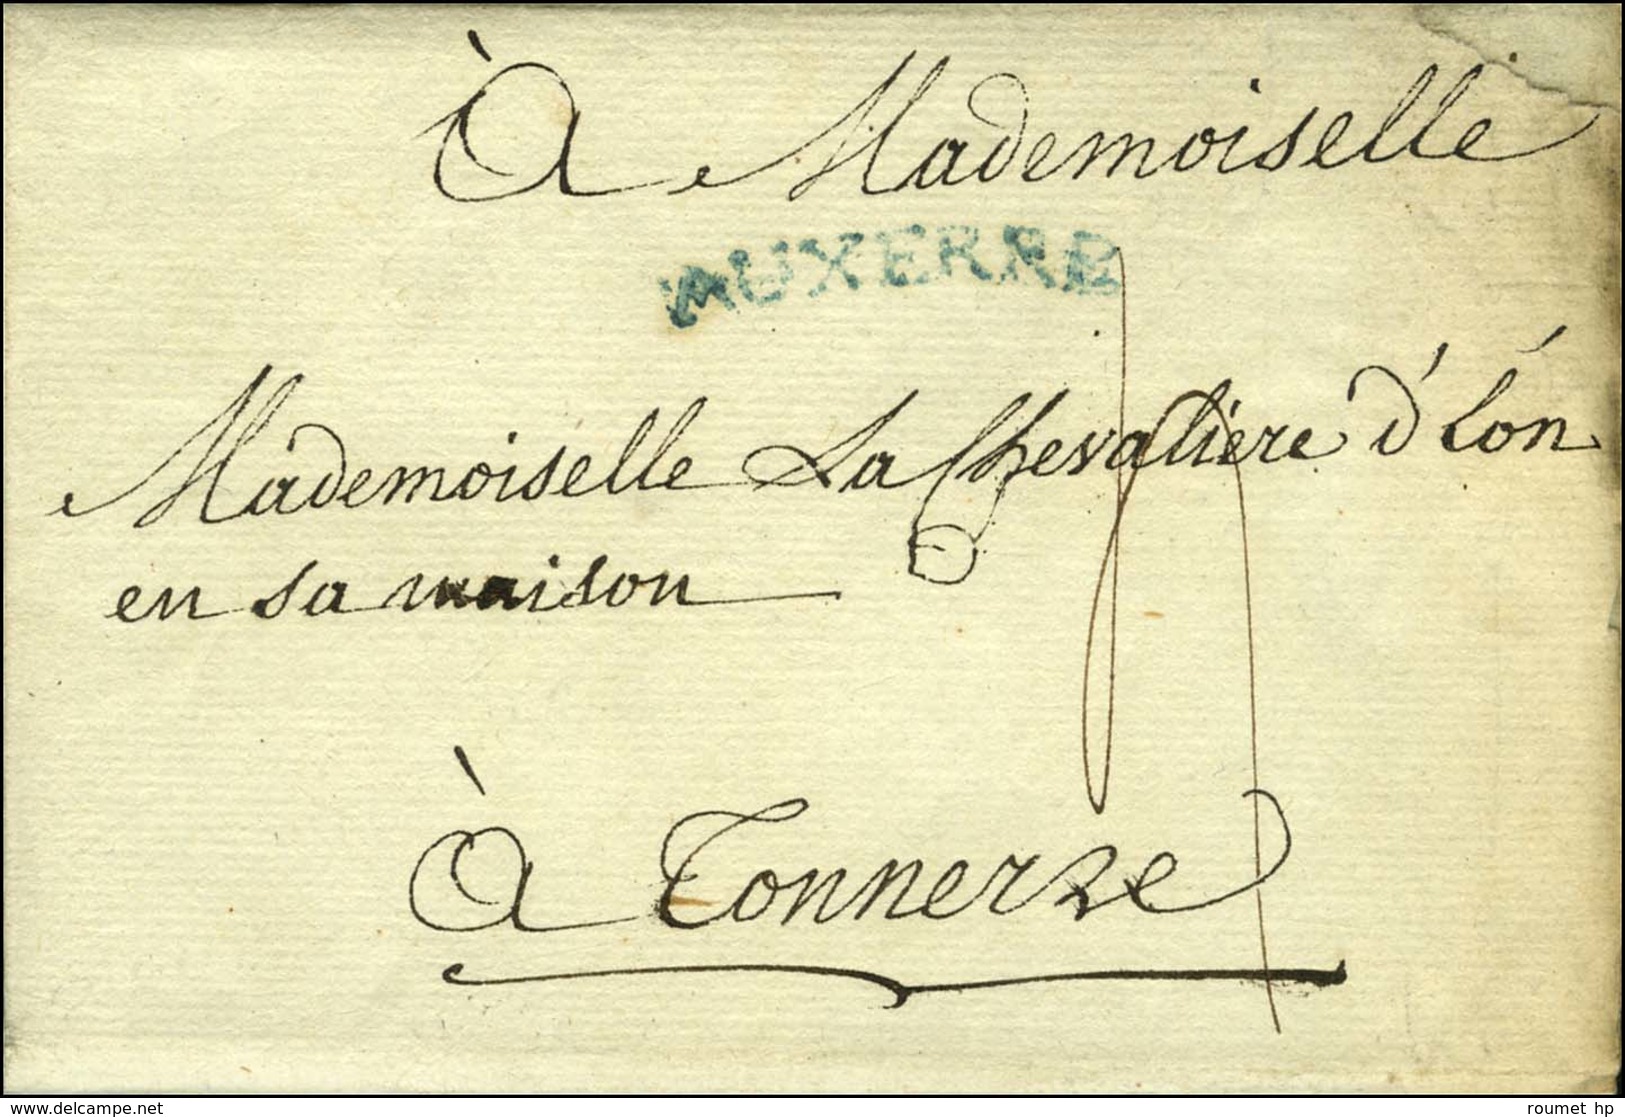 À Mademoiselle
AUXERRE
Mademoiselle La Chevaliere d'Eón
en sa maison
à Tonnerre
delcampe.net
roumet hp